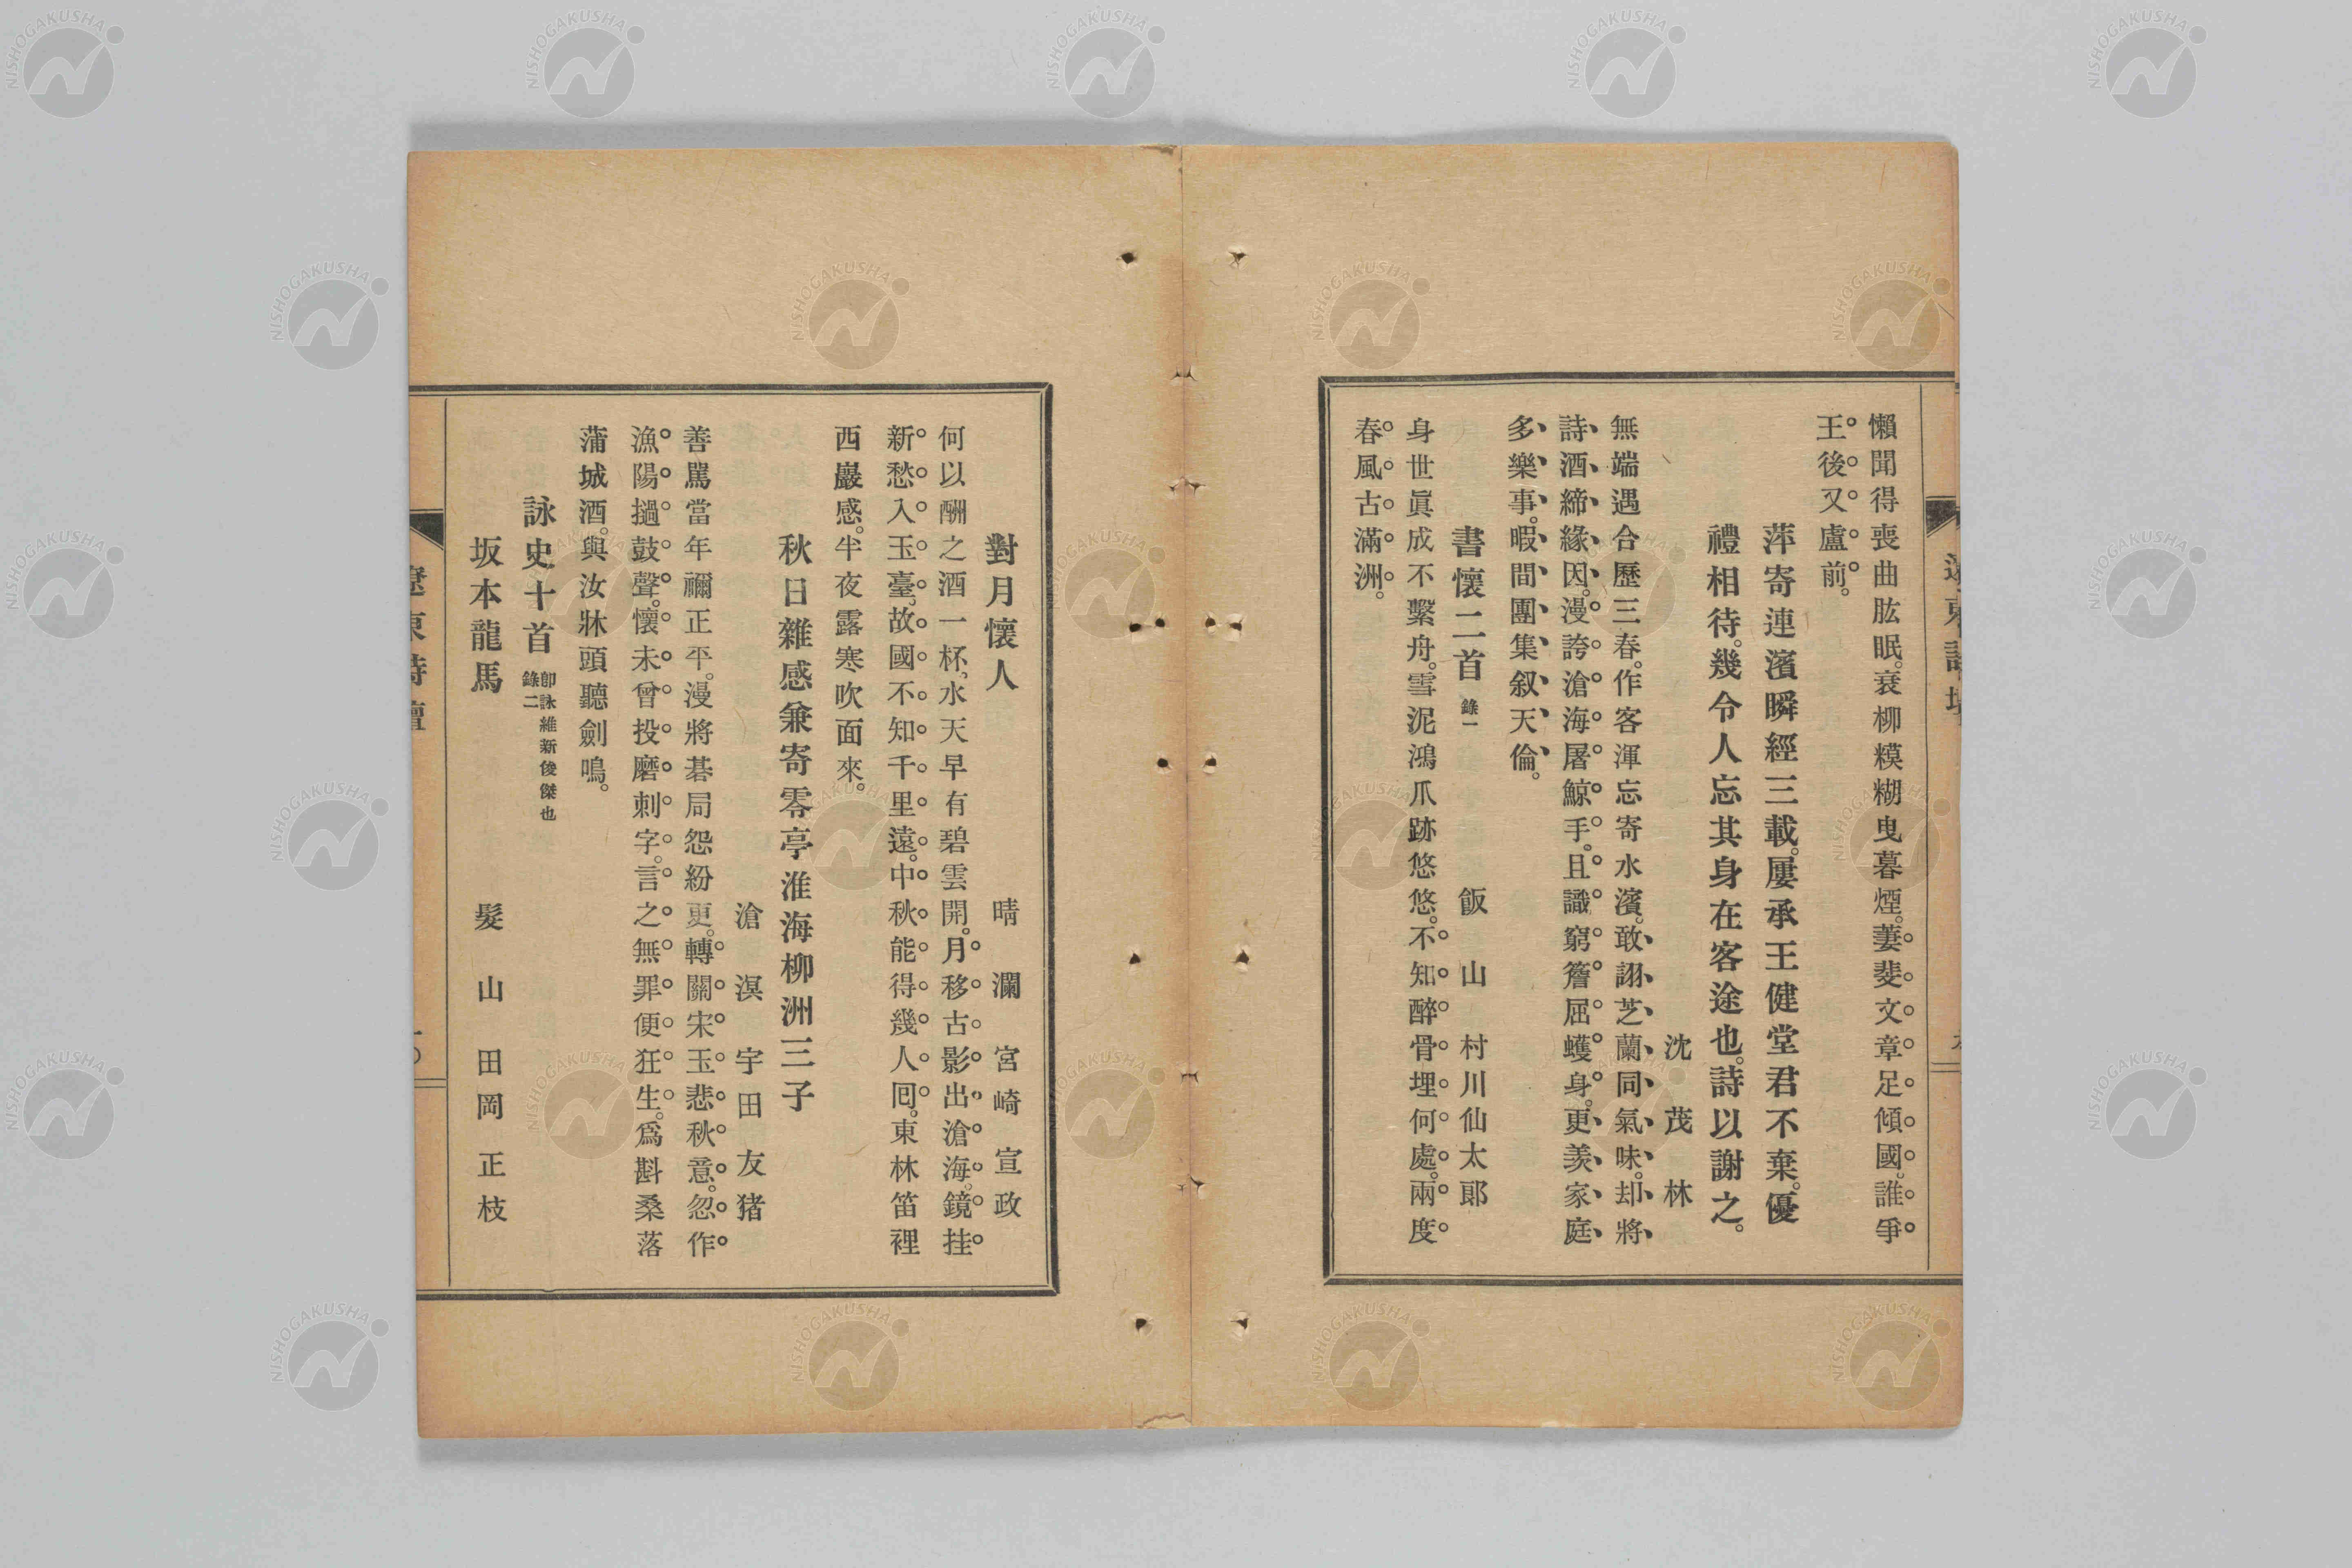 懶聞得喪曲肱眠。衰柳糢糊曳暮煙。萋斐文章足傾國。誰爭
王後又盧前。
萍寄連濱瞬經三載。屢承王健堂君不棄。優
禮相待。幾令人忘其身在客途也。詩以謝之。
沈茂林
無端遇合歷三春。作客渾忘寄水濱。敢詡芝蘭同氣味。却將
詩酒締緣因。漫誇滄海屠鯨手。且識窮簷屈蠖身。更羨家庭
多樂事。暇間團集叙天倫。
書懷二首 錄一 飯山 村川仙太郞
身世眞成不繫舟。雪泥鴻爪跡悠悠。不知醉骨埋何處。兩度
春風古滿洲。
對月懷人 晴瀾 宮崎宣政
何以酬之酒一杯。水天早有碧雲開。月移古影出滄海。鏡挂
新愁入玉臺。故國不知千里遠。中秋能得幾人囘。東林笛裡
西巖感。半夜露寒吹面來。
秋日雜感兼寄零亭淮海柳洲三子
滄溟 宇田友猪
善罵當年禰正平。漫將碁局怨紛更。轉關宋玉悲秋意。忽作
漁陽撾鼓聲。懷未曾投磨刺字。言之無罪便狂生。爲斟桑落
蒲城酒。與汝牀頭聽劍鳴。
詠史十首 卽詠維新俊傑也 錄二
坂本龍馬 髮山 田岡正枝
遼東詩壇
一〇
NISHOGAKUSHA